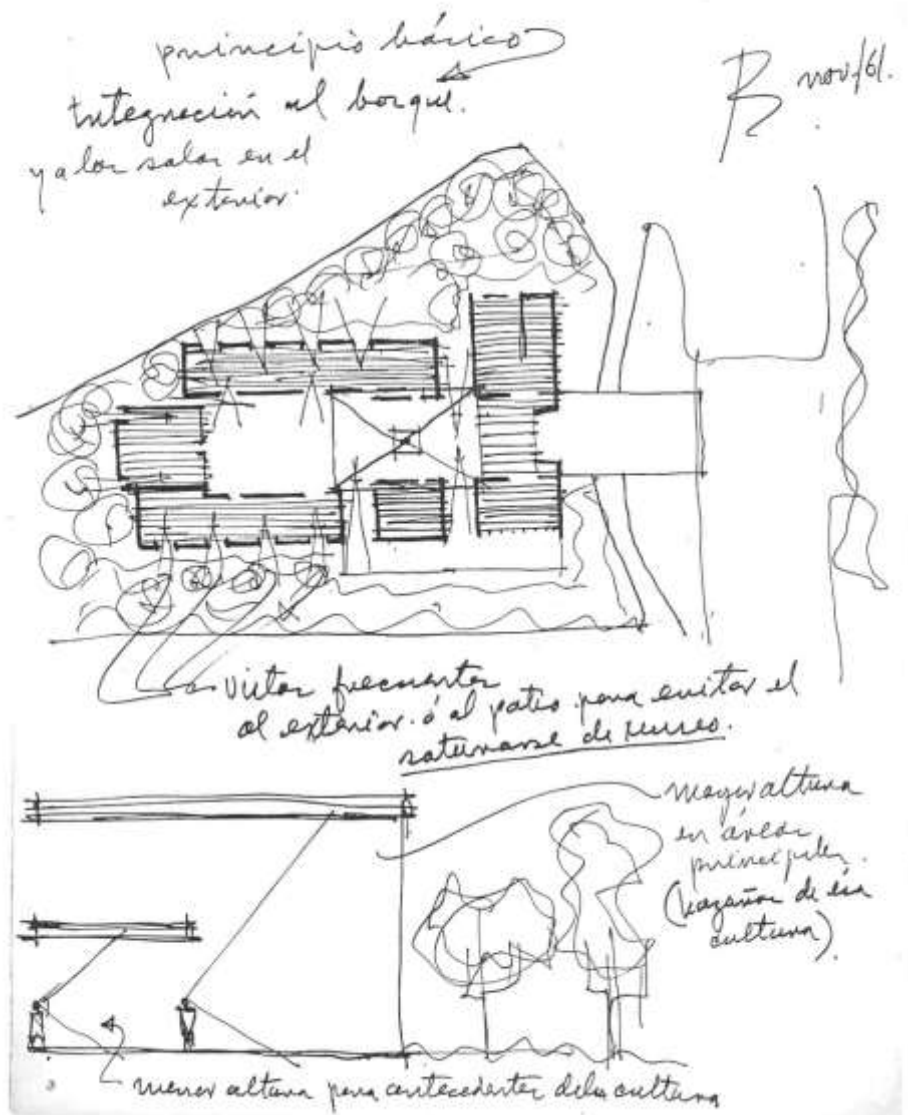 principio básico
Integración al bosque.
y a las salas en el
exterior.
nov/61.
vistas frecuentes
al exterior ó al patio para evitar el
saturarse de museo.
mayor altura
en áreas
principales.
(hazañas de esa
cultura)
menor altura para antecedentes de la cultura